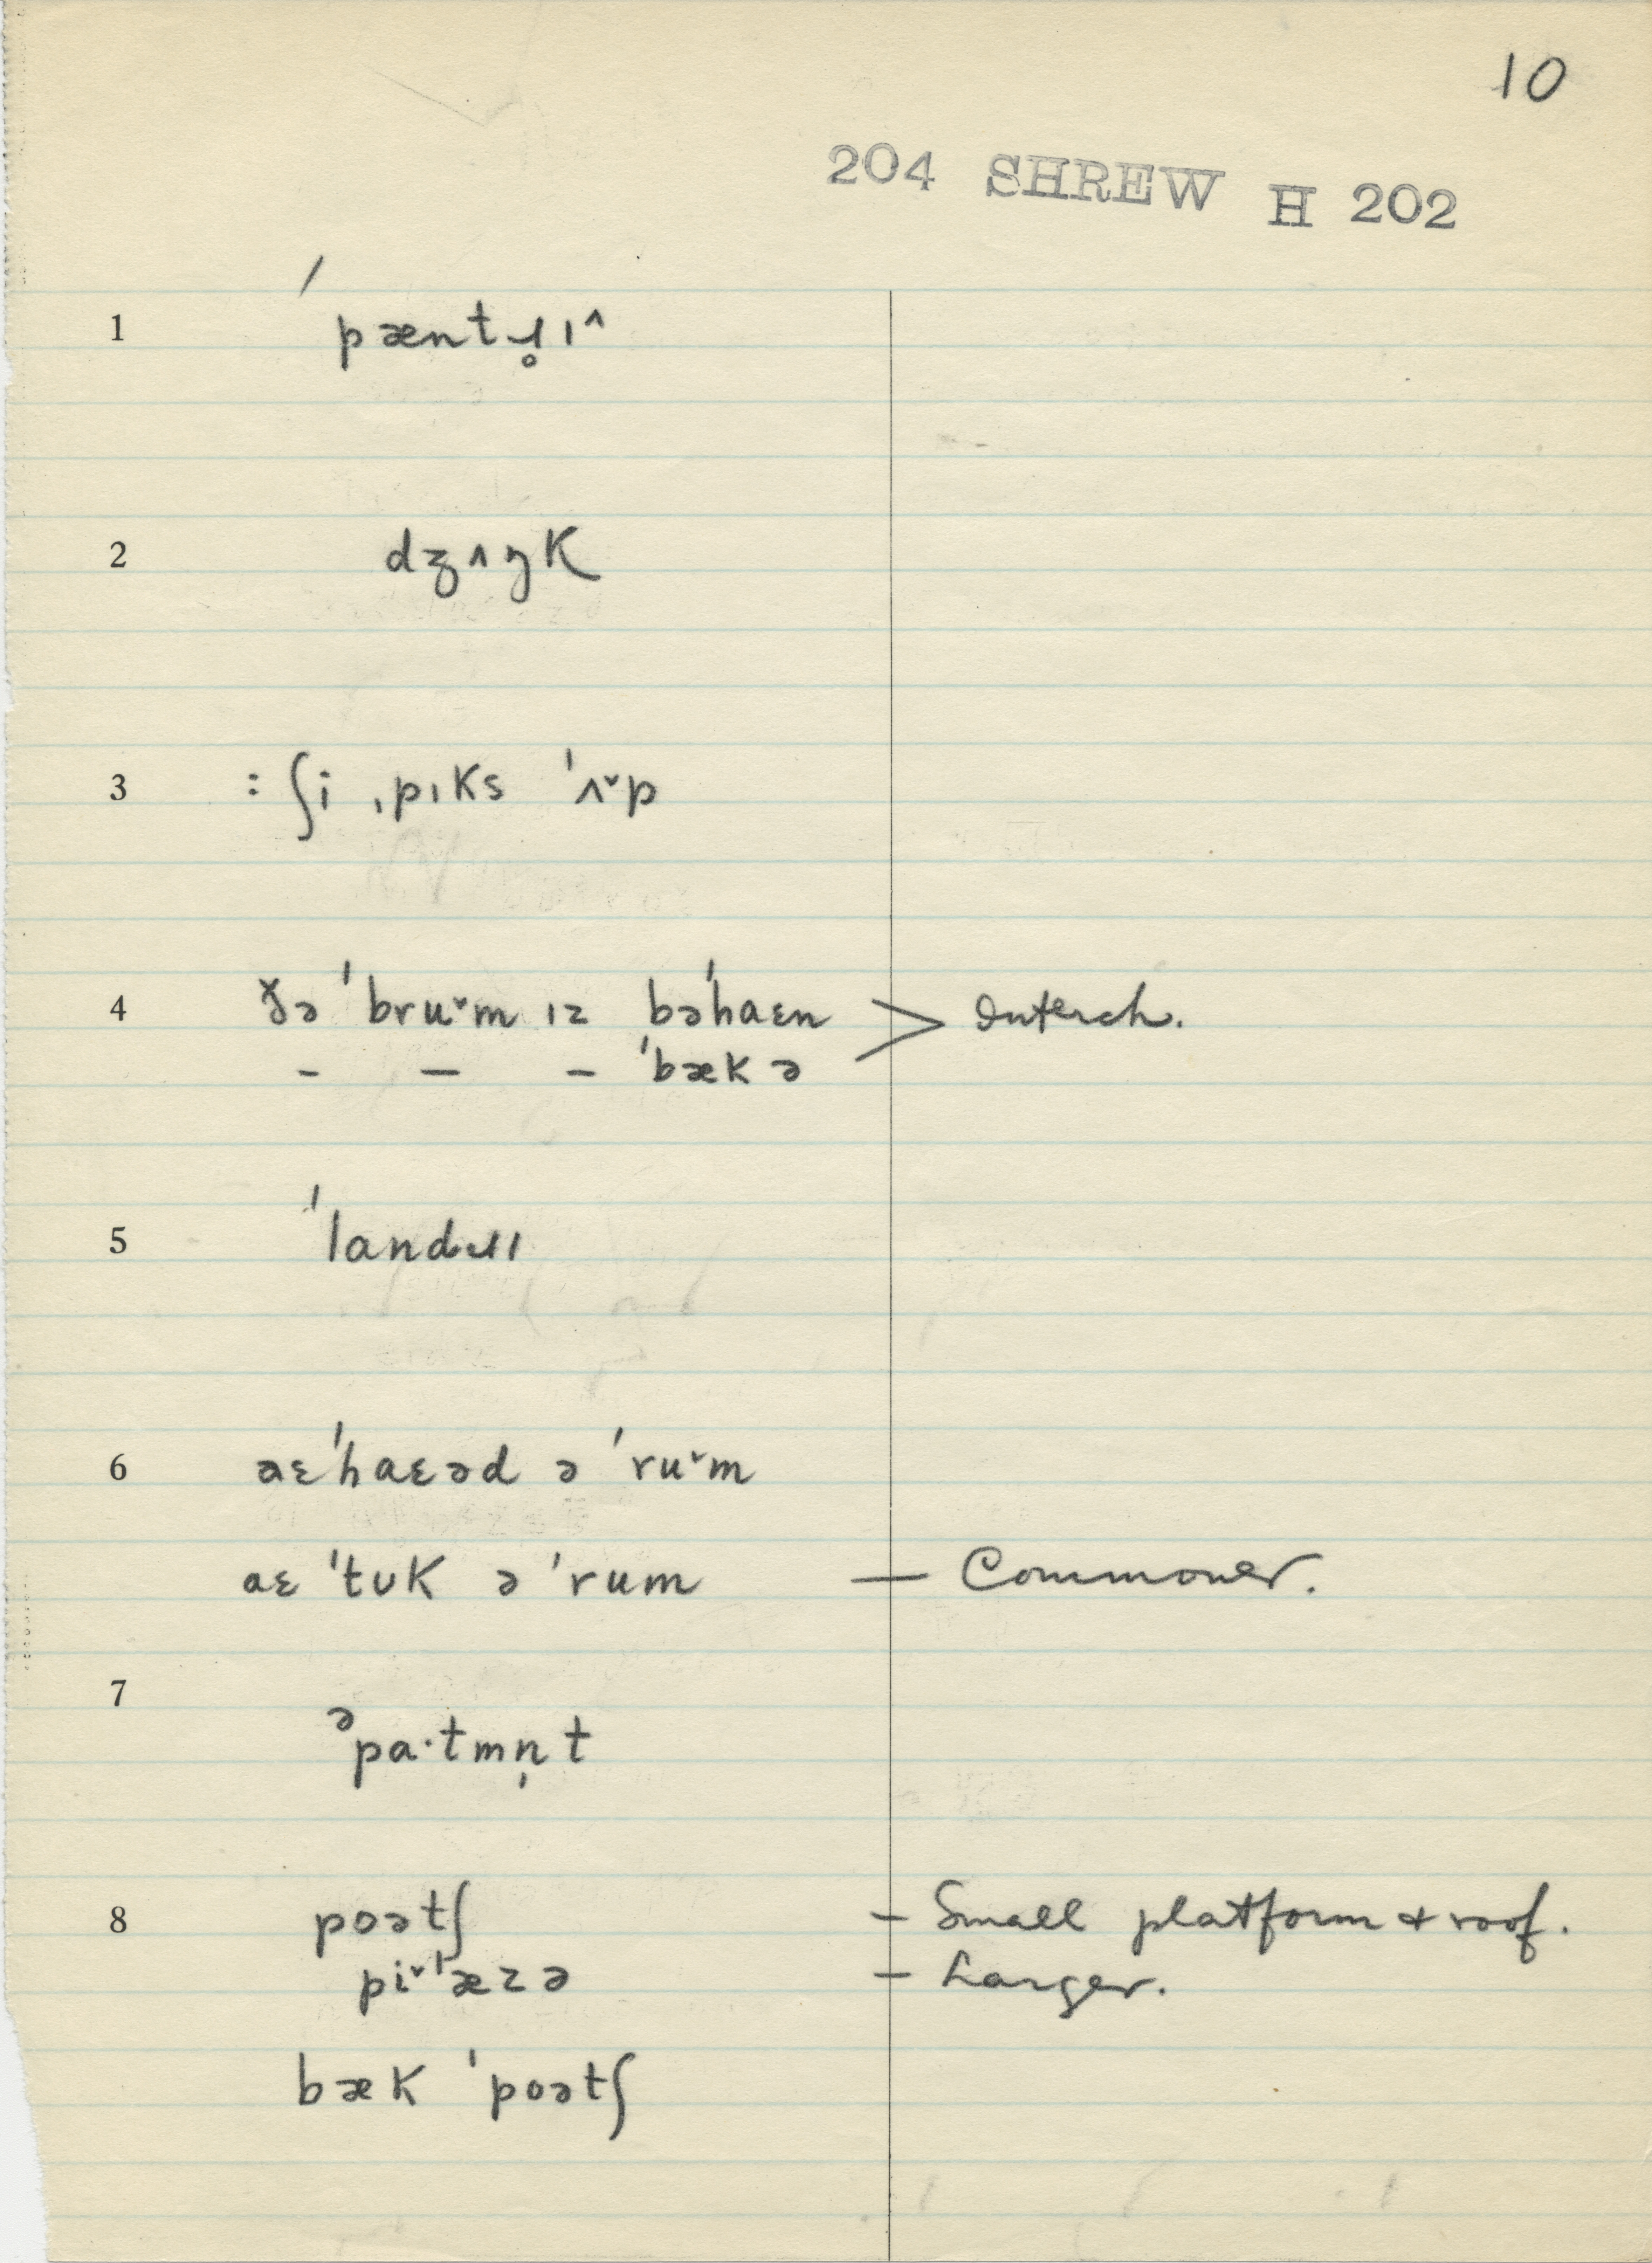 10
204 SHREW H 202
1 ˈpæntɹ̥ɪ^
2 dʒʌŋk
3 : ʃi ˌpɪks ˈʌ˅p
4 ðə ˈbru˅m ɪz bəˈhaɛn > Interch.
– – – ˈbækə
5 ˈlandɹɪ
6 aɛˈhaɛəd ə ˈru˅m
aɛ ˈtʊk ə ˈrum — Commoner.
7 əpa·tmn̩t
8 poətʃ – Small platform & roof.
pi˅ˈæzə – Larger.
bæk ˈpoətʃ